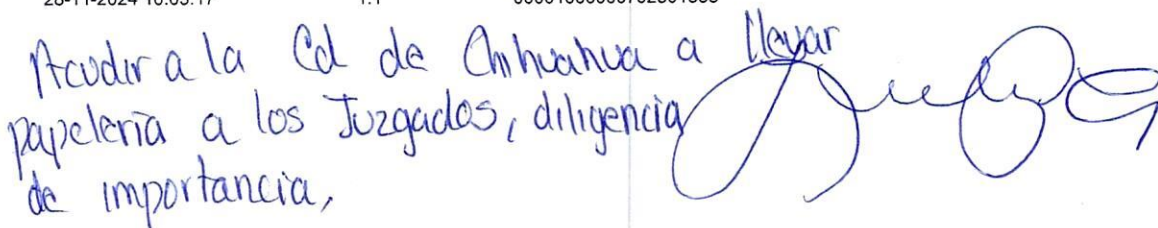 Acudir a la Cd de Chihuahua a llevar
papelería a los Juzgados, diligencia
de importancia,